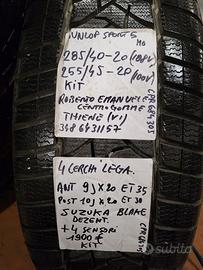 DUNLOP SPORT 5
MO
285/40-20 (108V)
255/45-20
KIT
ROBERTO EMANUELE
CENTROGOMME
THIENE (VI)
348 6431157
4 CERCHI LEGA.
ANT 9J X 20 ET 35
POST 10J X 20 ET 30
SUZUKA BLAKE
DEZENT.
+ 4 SENSORI
1900 €
KIT.
subito